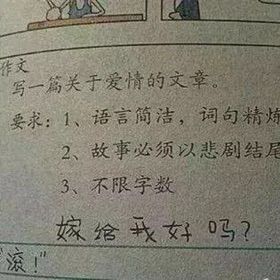 作文
写一篇关于爱情的文章。
要求：1、语言简洁，词句精炼
2、故事必须以悲剧结尾
3、不限字数
嫁给我好吗？
“滚！”